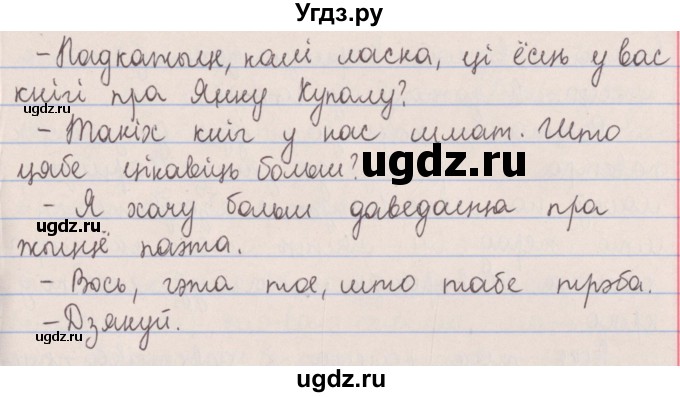 Угдз.ру
– Падкажыце, калі ласка, ці ёсць у вас
кнігі пра Янку Купалу?
– Такіх кніг у нас шмат. Што
цябе цікавіць больш?
– Я хачу больш даведацца пра
жыццё паэта.
– Вось, гэта тое, што табе трэба.
– Дзякуй.
ugdz.ru
ugdz.ru
ugdz.ru
ugdz.ru
ugdz.ru
ugdz.ru
ugdz.ru
ugdz.ru